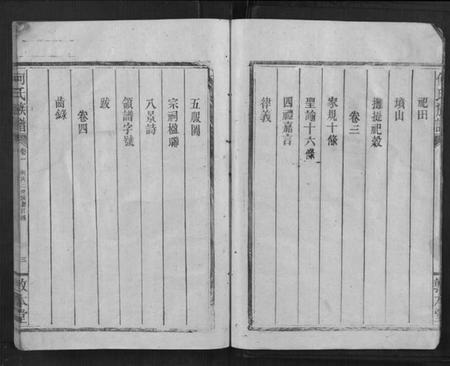 祀田
墳山
攤捉祀穀
卷三
家規十條
聖諭十六條
四禮嘉言
律義
五服圖
宗祠楹聯
八景詩
領譜字號
跋
卷四
齒錄
何氏族譜
卷一
三
敦本堂